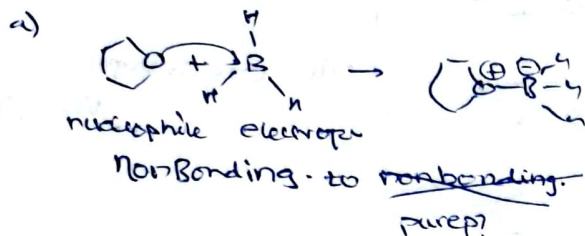 a)
O + H B H H → O ⊕ B ⊖ H H H
nucleophile electrophile
NonBonding. to nonbonding.
purep?